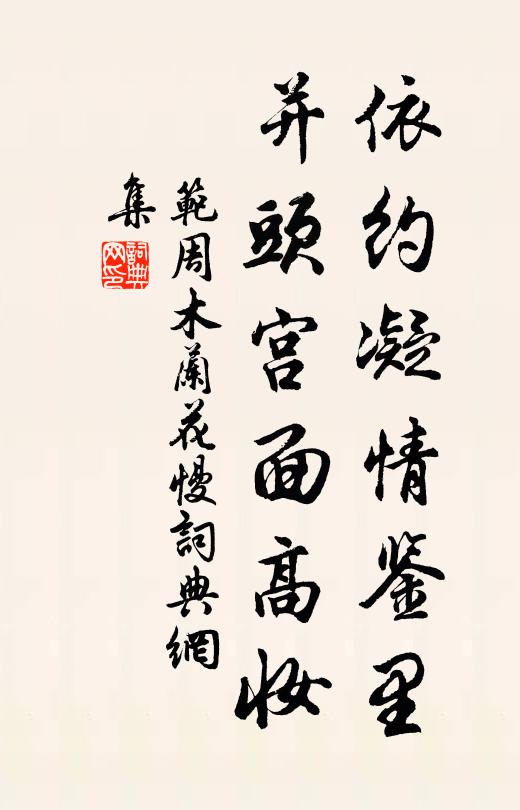 依约凝情鉴里
并头宫面高妆
範周木蘭花慢詞典網
集
詞典网印